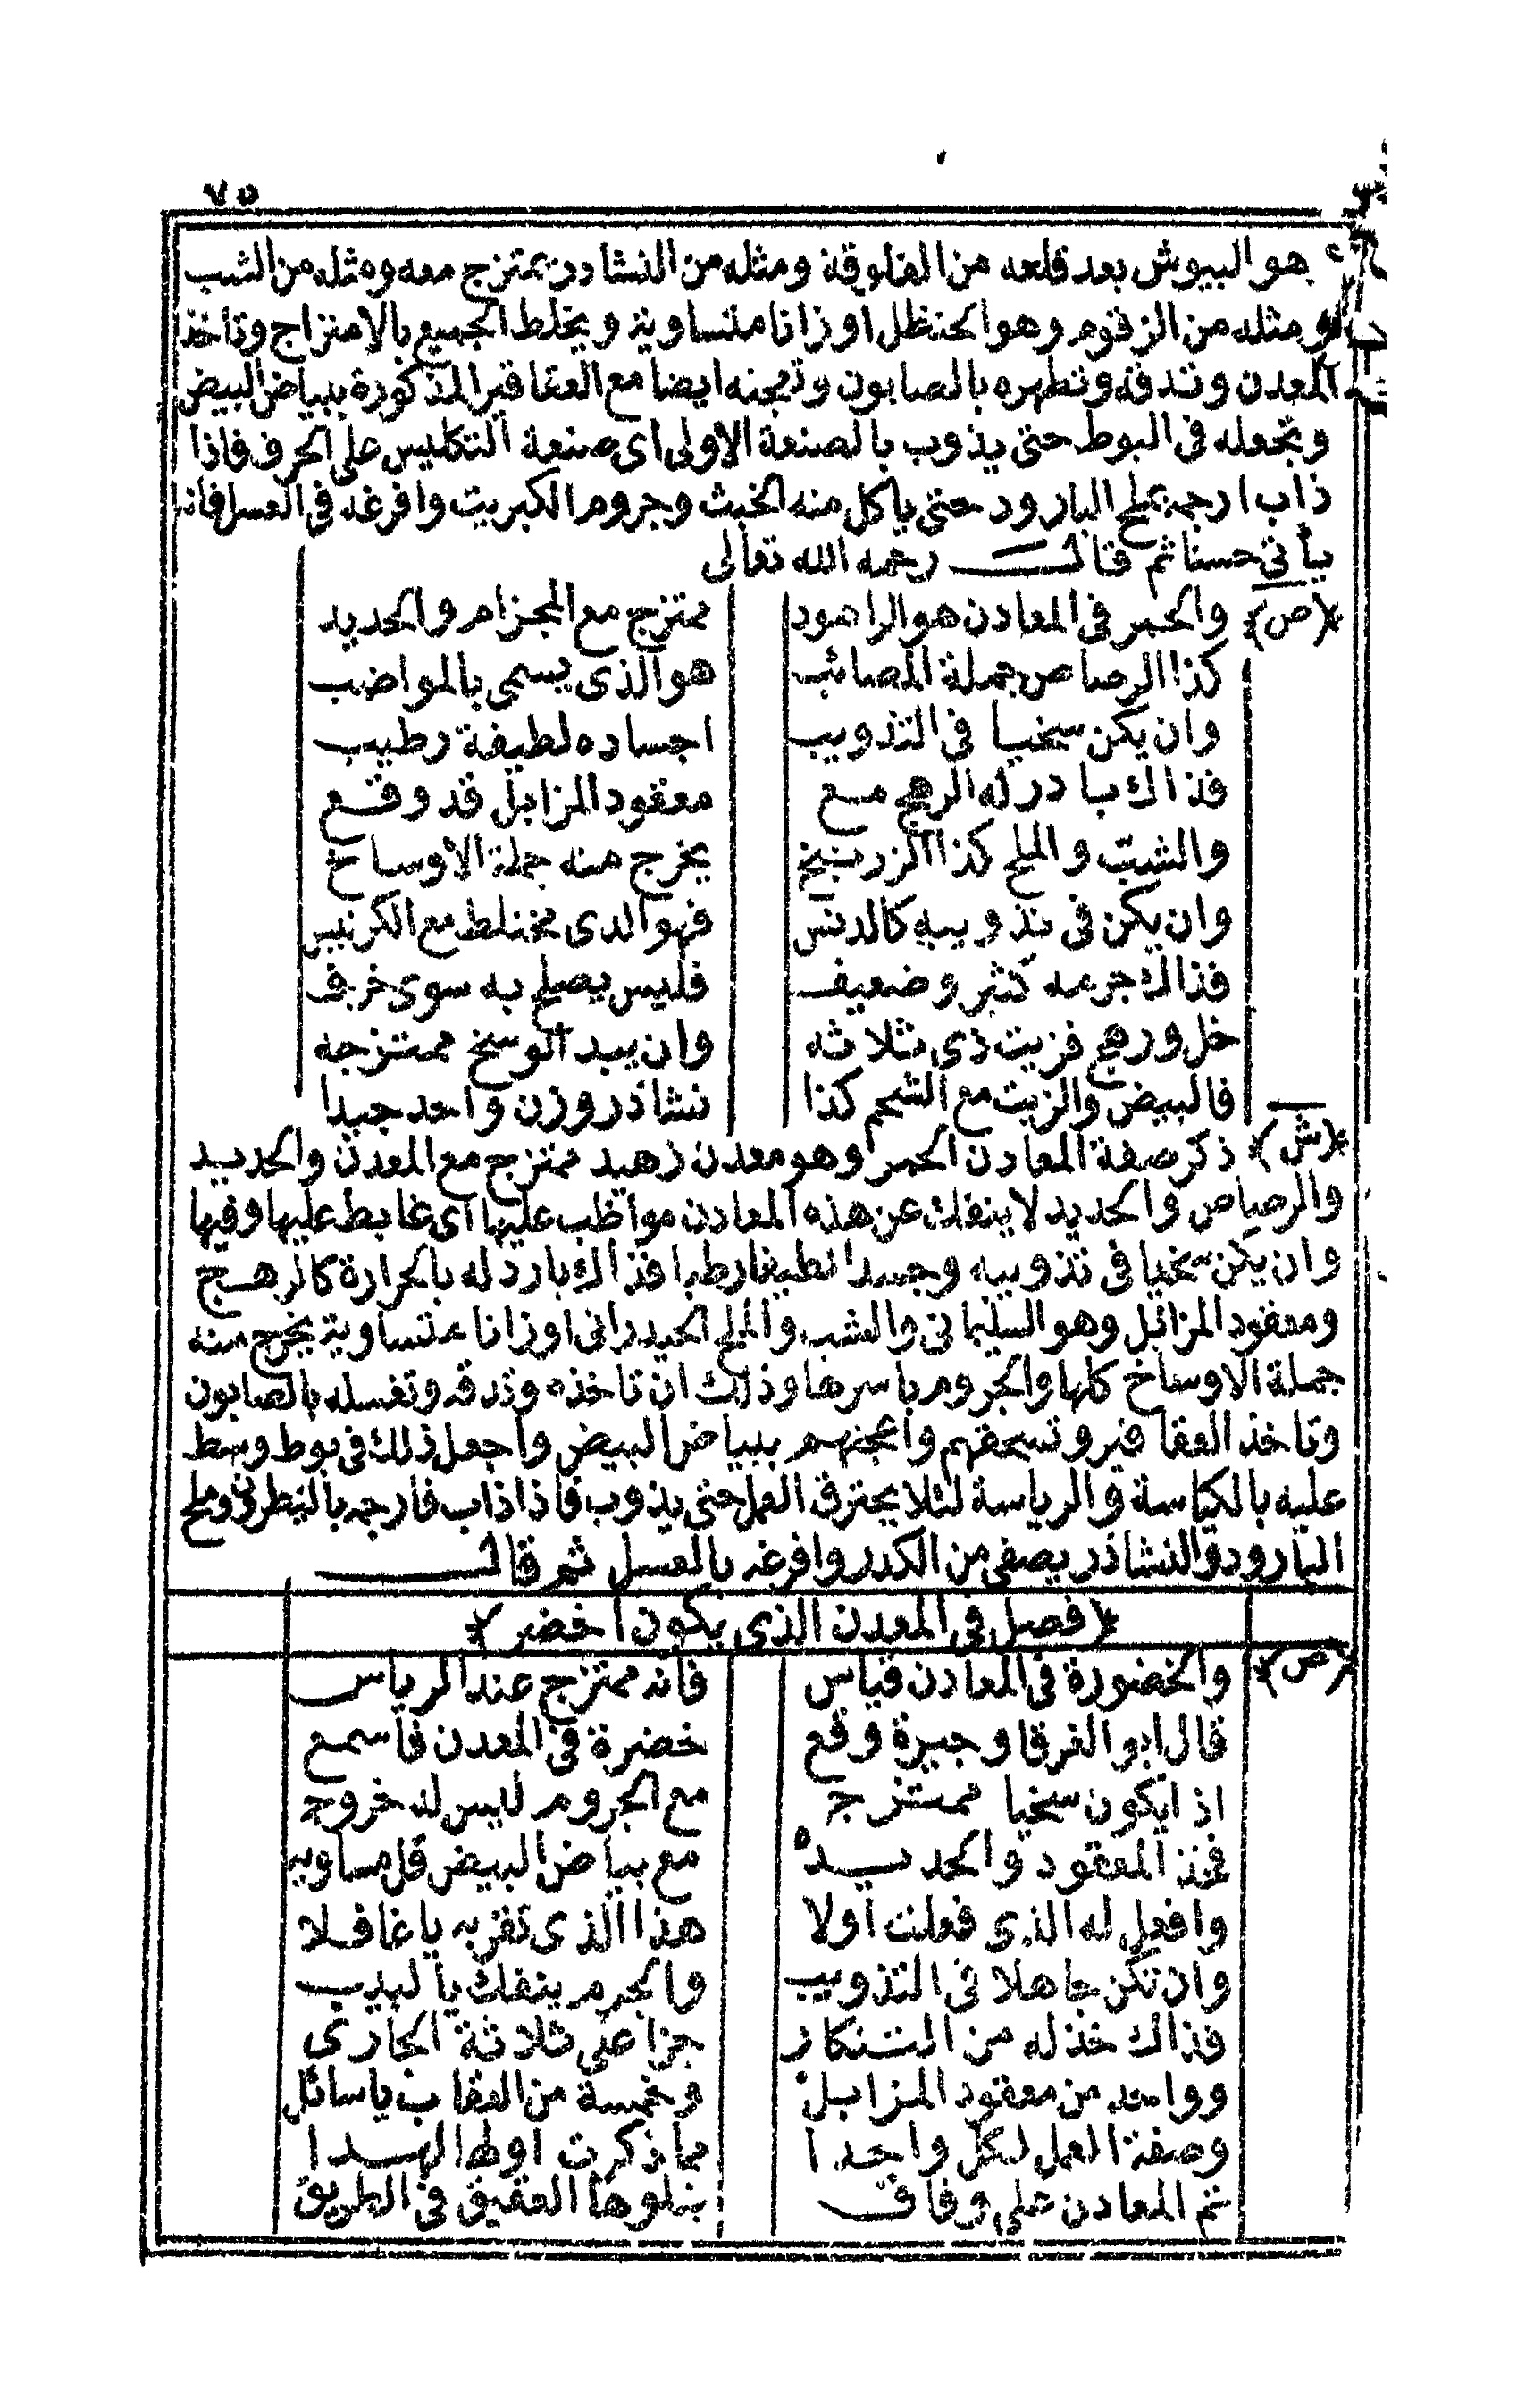 ٧٥
هو البيوش بعد قلعه من الفلوقة ومثله من النشادر يمتزج معه ومثله من الشب
ومثله من الزقوم وهو الحنظل اوزانا متساوية ويخلط الجميع بالامتزاج وتاخذ
المعدن وتدقه وتطهره بالصابون وتعجنه ايضا مع العقاقير المذكورة ببياض البيض
وتجعله في البوط حتى يذوب بالصنعة الاولى اى صنعة التكليس على الحرف فاذا
ذاب ارجمه بملح البارود حتى ياكل منه الخبث وجروم الكبريت وافرغه في العسل فانه
يأتى حسنا ثم قال رحمه الله تعالى
﴿ص﴾ والحمر في المعادن هو الراهود ممتزج مع المجزام والحديد
كذا الرصاص جملة المصائب هو الذى يسمى بالمواضب
وان يكن سخيا في التذويب اجساده لطيفة رطيب
فذاك بادر له الرهج مع معقود المزابل قد وقع
والشب والملح كذا الزرنيخ يخرج منه جملة الاوساخ
وان يكن في تذويبه كالدنس فهو الذى مختلط مع الكرنيس
فذاك جرمه كثير وضعيف فليس يصلح به سوى خريف
خل ورهج فزيت ذى ثلاثه وان يبد الوسخ ممتزجه
فالبيض والزيت مع الشحم كذا نشاذر وزن واحد جيدا
﴿ش﴾ ذكر صفة المعادن الحمر وهو معدن زهيد ممتزج مع المعدن والحديد
والرصاص والحديد لا ينفك عن هذه المعادن مواظب عليها اى غابط عليها وفيها
وان يكن سخيا في تذويبه وجسدا لطيفا رطبا فذاك بارد له بالحرارة كالرهج
ومعقود المزائبل وهو السليمانى والشب والملح الحيدرانى اوزانا متساوية يخرج منه
جملة الاوساخ كلها والجروم باسرها وذلك ان تاخذه وتدقه وتغسله بالصابون
وتاخذ العقاقير وتسحقهم واعجنهم ببياض البيض واجعل ذلك في بوط وسط
عليه بالكياسة والرياسة لئلا يحترق العمل حتى يذوب فاذا ذاب فارجمه بالنطرون وملح
البارود والنشاذر يصفى من الكدر وافرغه بالعسل ثم قال
﴿فصل في المعدن الذى يكون اخضر﴾
﴿ص﴾ والخضورة في المعادن قياس فانه ممتزج عند الرياس
قال ابو الغرقا وجيرة وقع خضرة في المعدن فاسمع
اذ ايكون سخيا ممتزج مع الجروم ليس له خروج
فخذ المعقود والحديده مع بياض البيض قل مساويه
وافعل له الذى فعلت اولا هذا الذى تقربه يا غافلا
وان تكن جاهلا في التذويب والجرم ينفك يا لبيب
فذاك خذ له من التنكار جزا على ثلاثة الجارى
وواحد من معقود المزابل وخمسة من العقاب يا سائل
وصفة العمل لكل واحدا مما ذكرت اولا الهدا
تم المعادن على وفاق بتلوها العقيق في الطريق